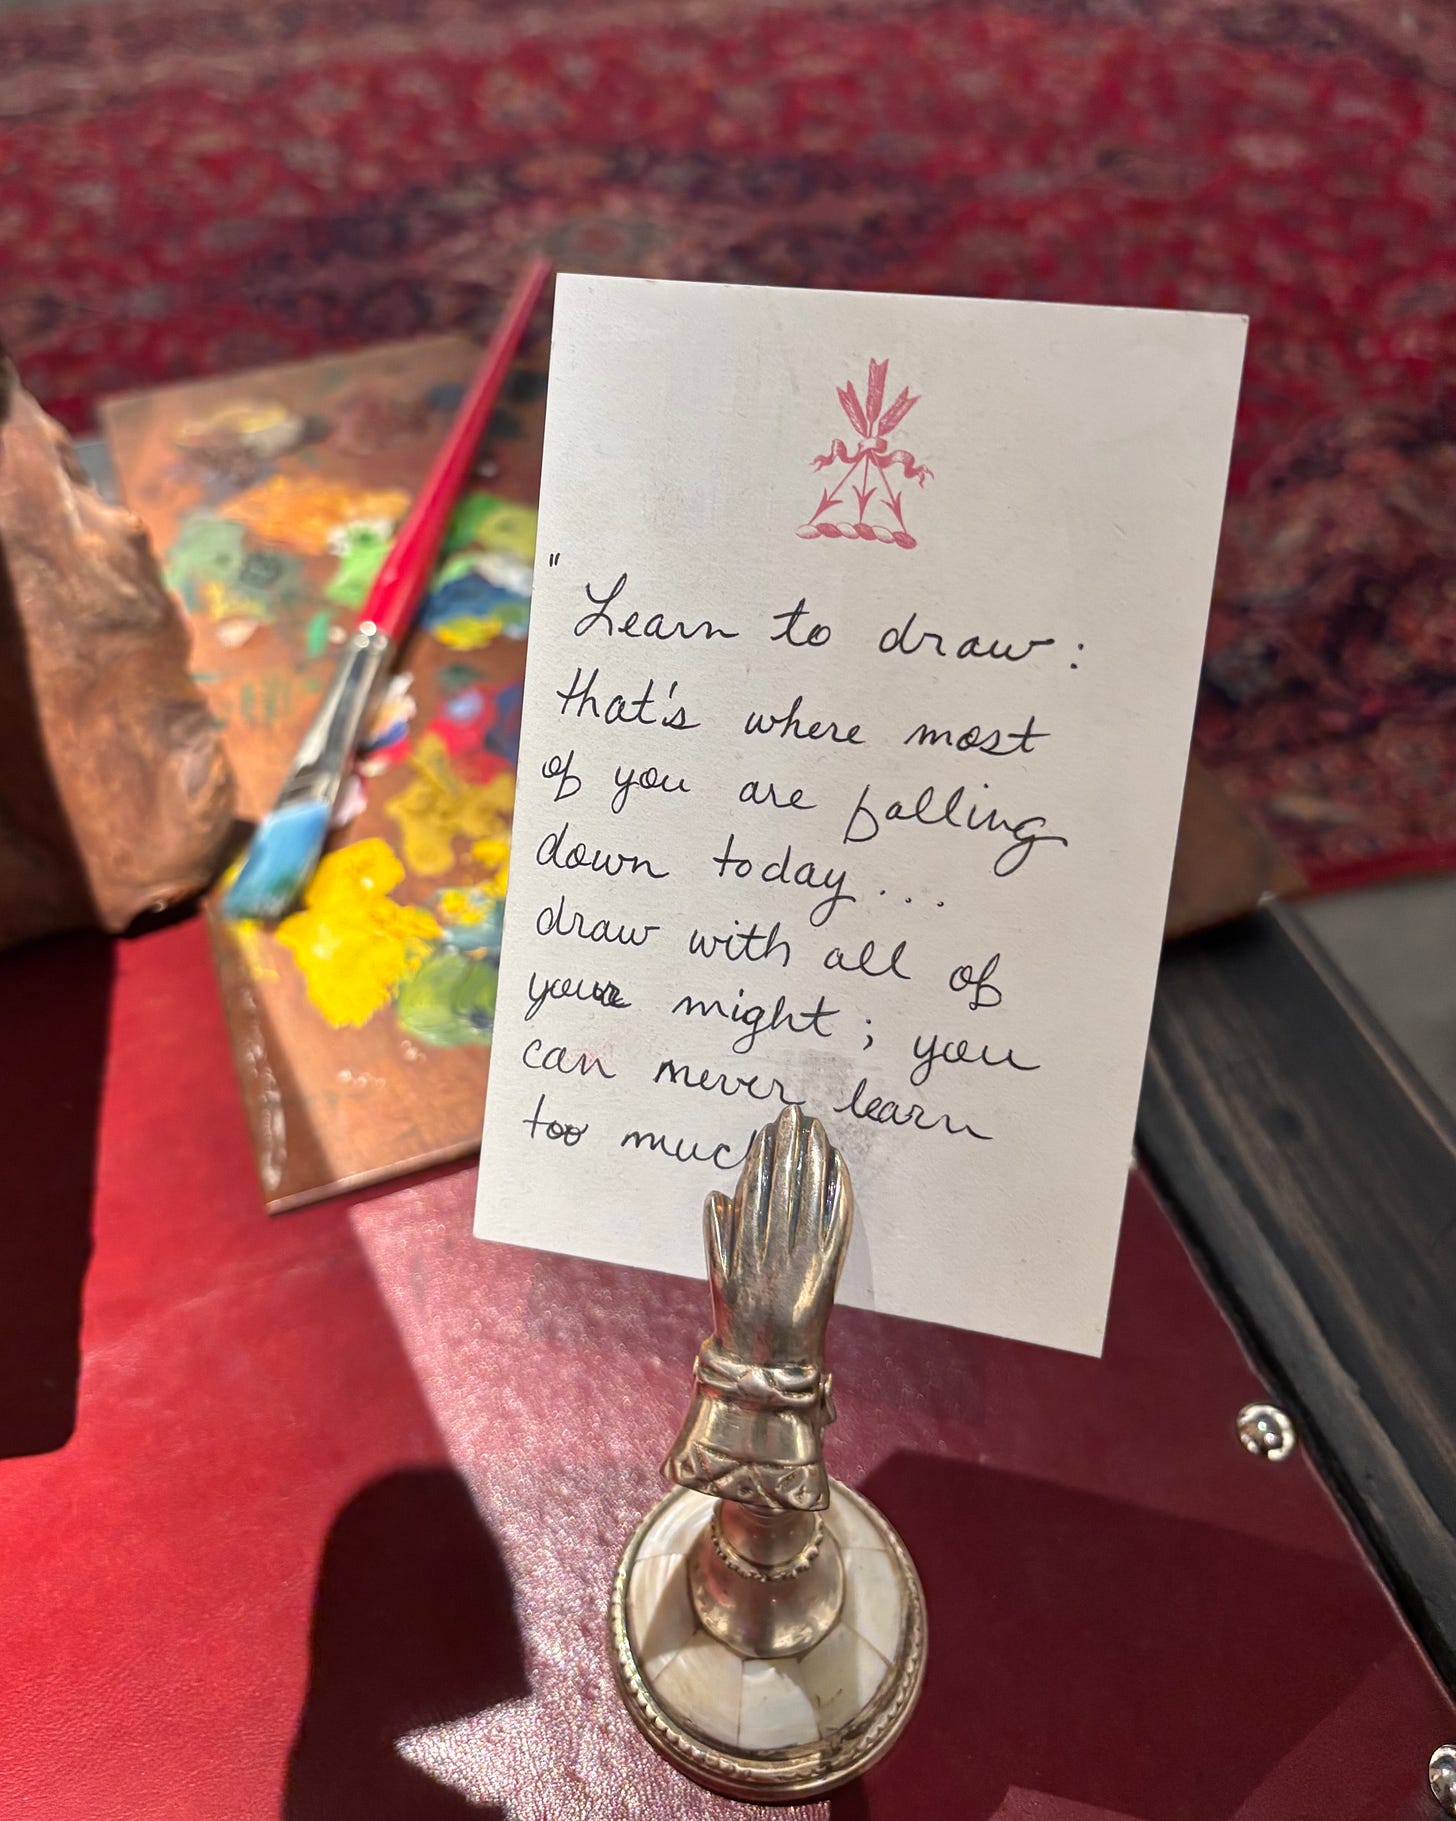 "
Learn to draw:
that's where most
of you are falling
down today...
draw with all of
your might; you
can never learn
too much